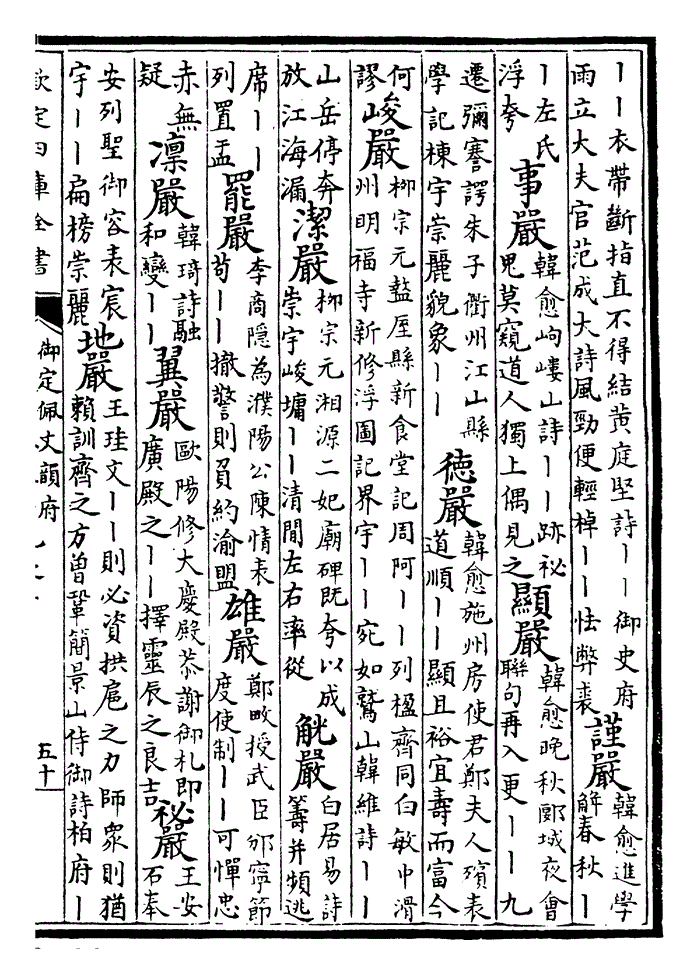 丨丨衣帶斷指直不得結黃庭堅詩丨丨御史府
雨立大夫官范成大詩風勁便輕棹丨丨怯弊裘
謹嚴
韓愈進學
解春秋丨
丨左氏
浮夸
事嚴
韓愈岣嶁山詩丨丨跡祕
鬼莫窺道人獨上偶見之
顯嚴
韓愈晚秋郾城夜會
聯句再入更丨丨九
遷彌謇諤朱子衢州江山縣
學記棟宇崇麗貌象丨丨
德嚴
韓愈施州房使君鄭夫人殯表
道順丨丨顯且裕宜壽而富今
何
謬
峻嚴
柳宗元盩厔縣新食堂記周阿丨丨列楹齊同白敏中滑
州明福寺新修浮圖記界宇丨丨宛如鷲山韓維詩丨丨
山岳停奔
放江海漏
潔嚴
柳宗元湘源二妃廟碑既夸以成
崇宇峻墉丨丨清閒左右率從
觥嚴
白居易詩
籌并頻逃
席丨丨
列置盂
罷嚴
李商隱為濮陽公陳情表
苟丨丨撤警則負約渝盟
雄嚴
鄭畋授武臣邠寧節
度使制丨丨可憚忠
赤無
疑
凜嚴
韓琦詩融
和變丨丨
翼嚴
歐陽修大慶殿恭謝御札即
廣殿之丨丨擇靈辰之良吉
祕嚴
王安
石奉
安列聖御容表宸
宇丨丨扁榜崇麗
地嚴
王珪文丨丨則必資拱扈之力師衆則猶
賴訓齊之方曾鞏簡景山侍御詩柏府丨
欽定四庫全書
御定佩文韻府
五十